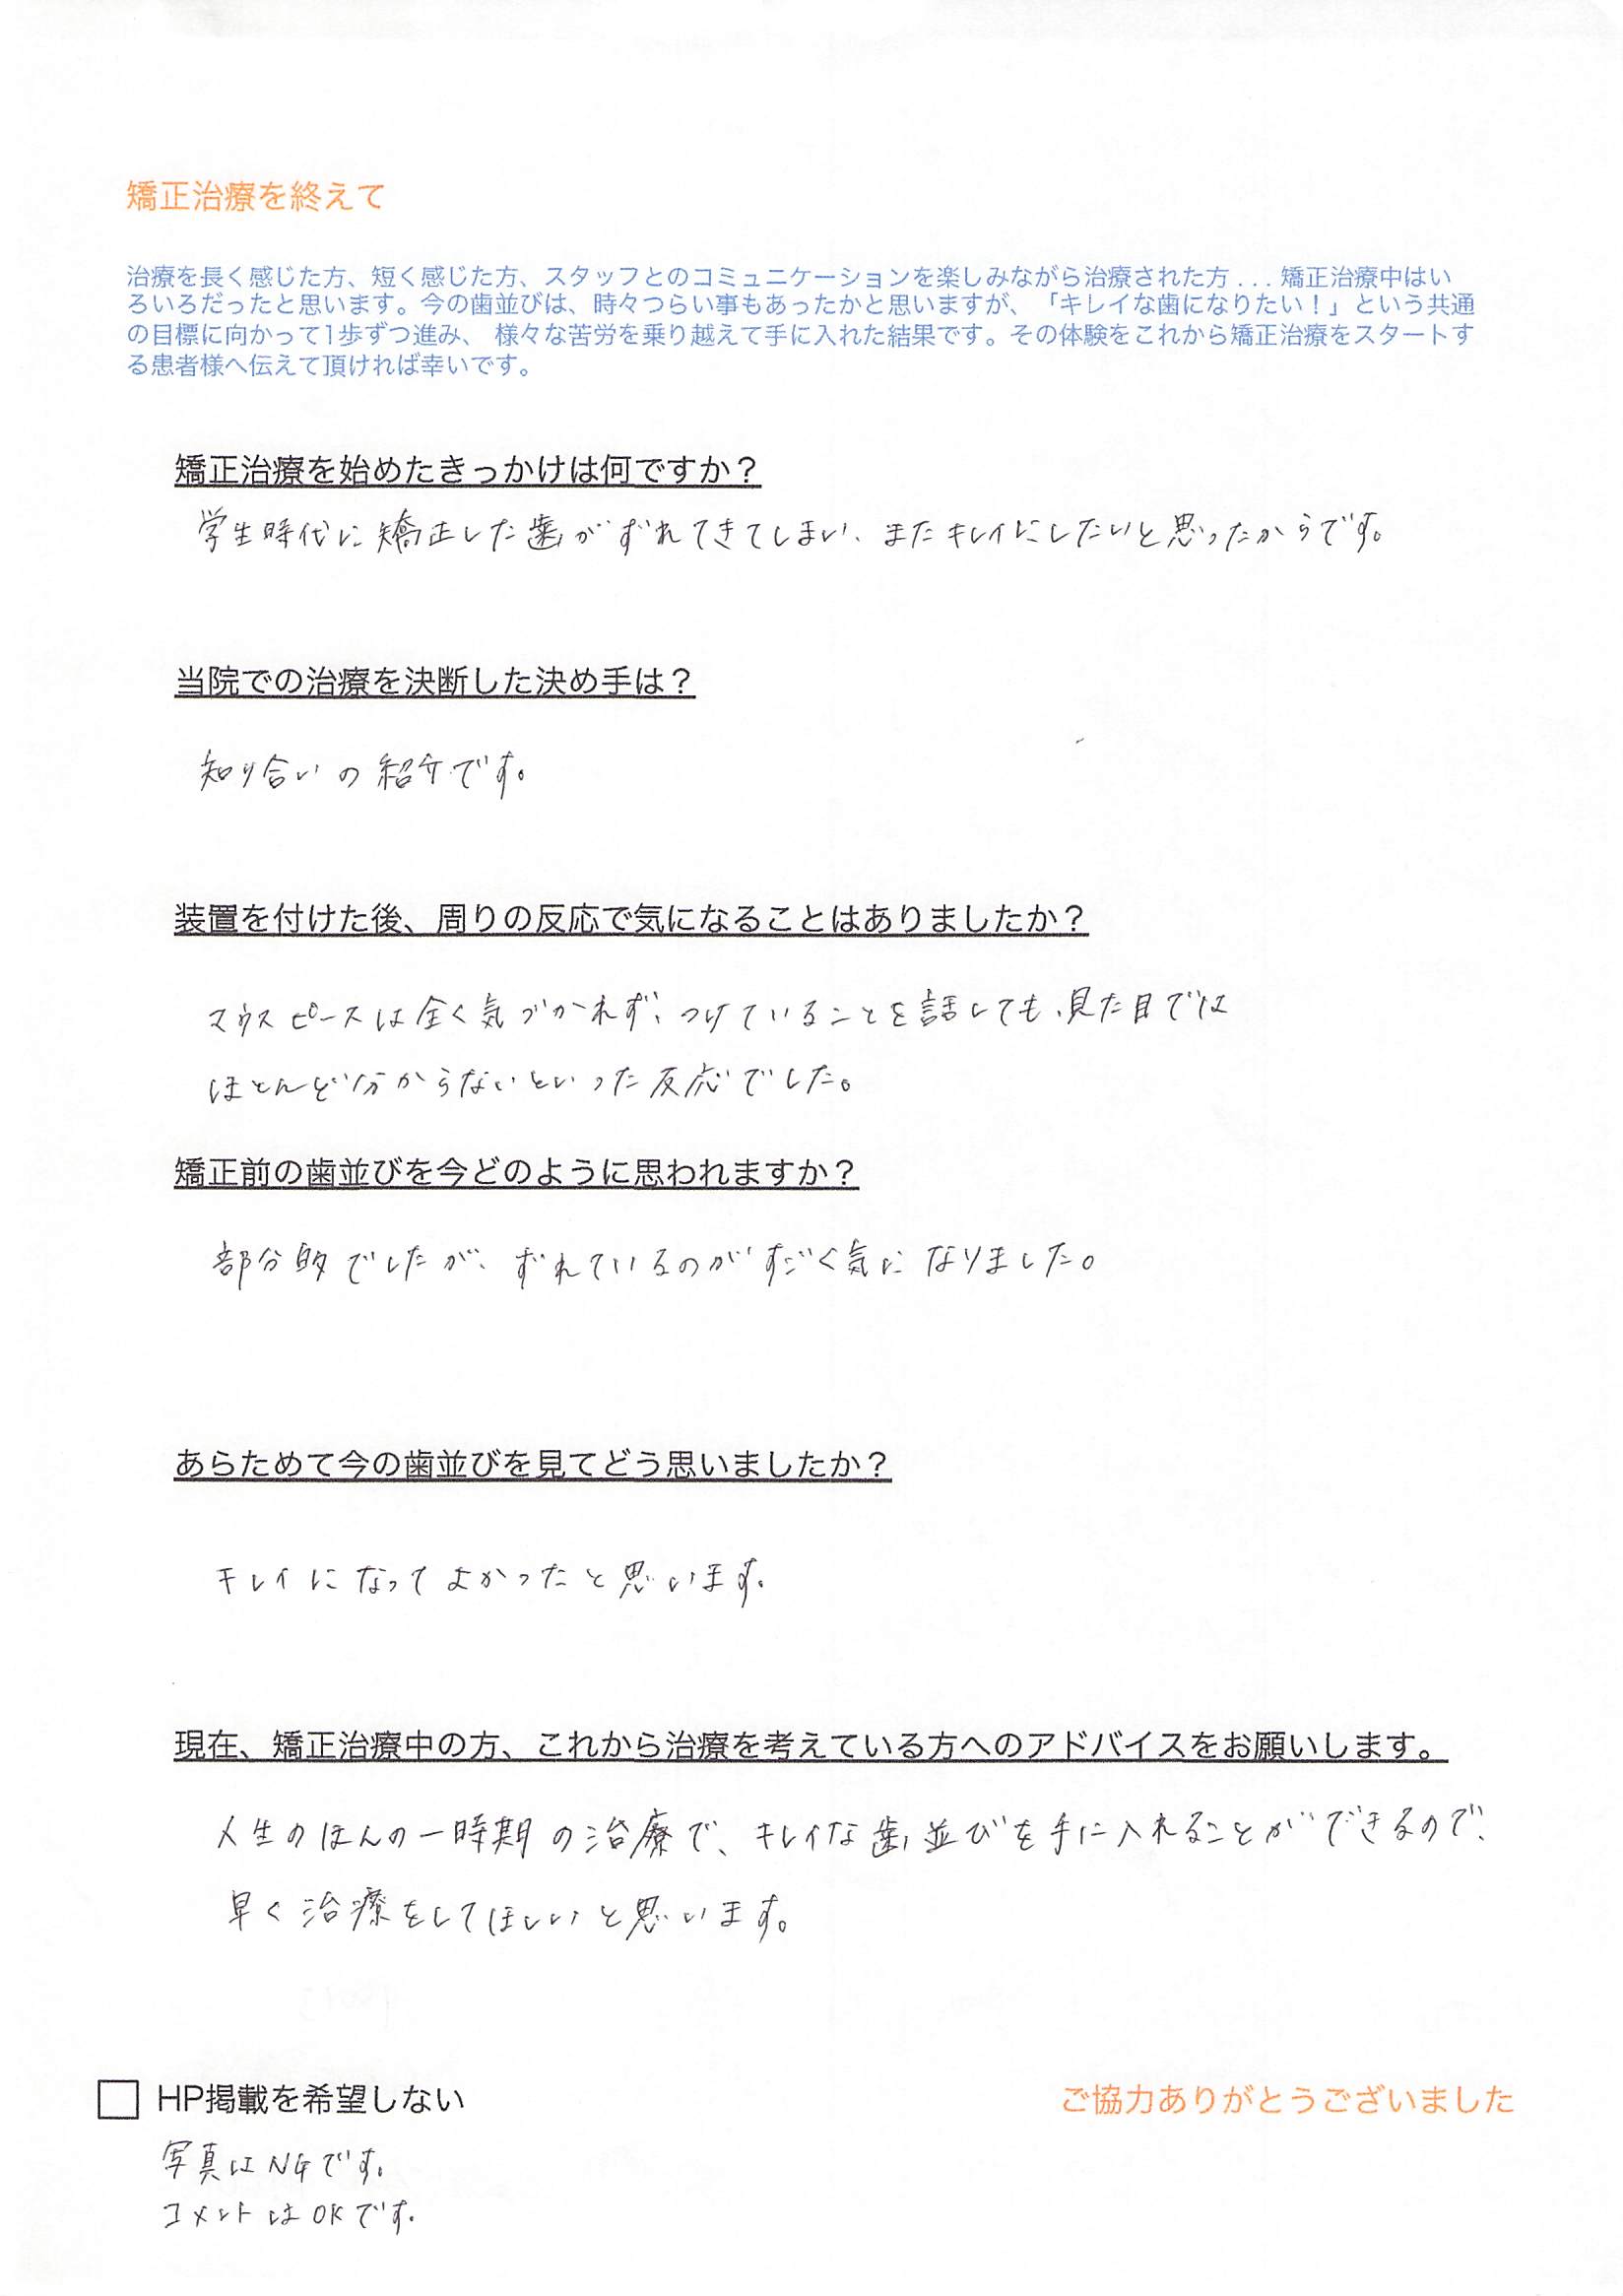 矯正治療を終えて
治療を長く感じた方、短く感じた方、スタッフとのコミュニケーションを楽しみながら治療された方...矯正治療中はい
ろいろだったと思います。今の歯並びは、時々つらい事もあったかと思いますが、「キレイな歯になりたい！」という共通
の目標に向かって1歩ずつ進み、 様々な苦労を乗り越えて手に入れた結果です。その体験をこれから矯正治療をスタートす
る患者様へ伝えて頂ければ幸いです。
矯正治療を始めたきっかけは何ですか？
学生時代に矯正した歯がずれてきてしまい、またキレイにしたいと思ったからです。
当院での治療を決断した決め手は？
知り合いの紹介です。
装置を付けた後、周りの反応で気になることはありましたか？
マウスピースは全く気づかれず、つけていることを話しても、見た目では
ほとんど分からないといった反応でした。
矯正前の歯並びを今どのように思われますか？
部分的でしたが、ずれているのがすごく気になりました。
あらためて今の歯並びを見てどう思いましたか？
キレイになってよかったと思います。
現在、矯正治療中の方、これから治療を考えている方へのアドバイスをお願いします。
人生のほんの一時期の治療で、キレイな歯並びを手に入れることができるので、
早く治療をしてほしいと思います。
HP掲載を希望しない
ご協力ありがとうございました
写真はNGです。
コメントはOKです。